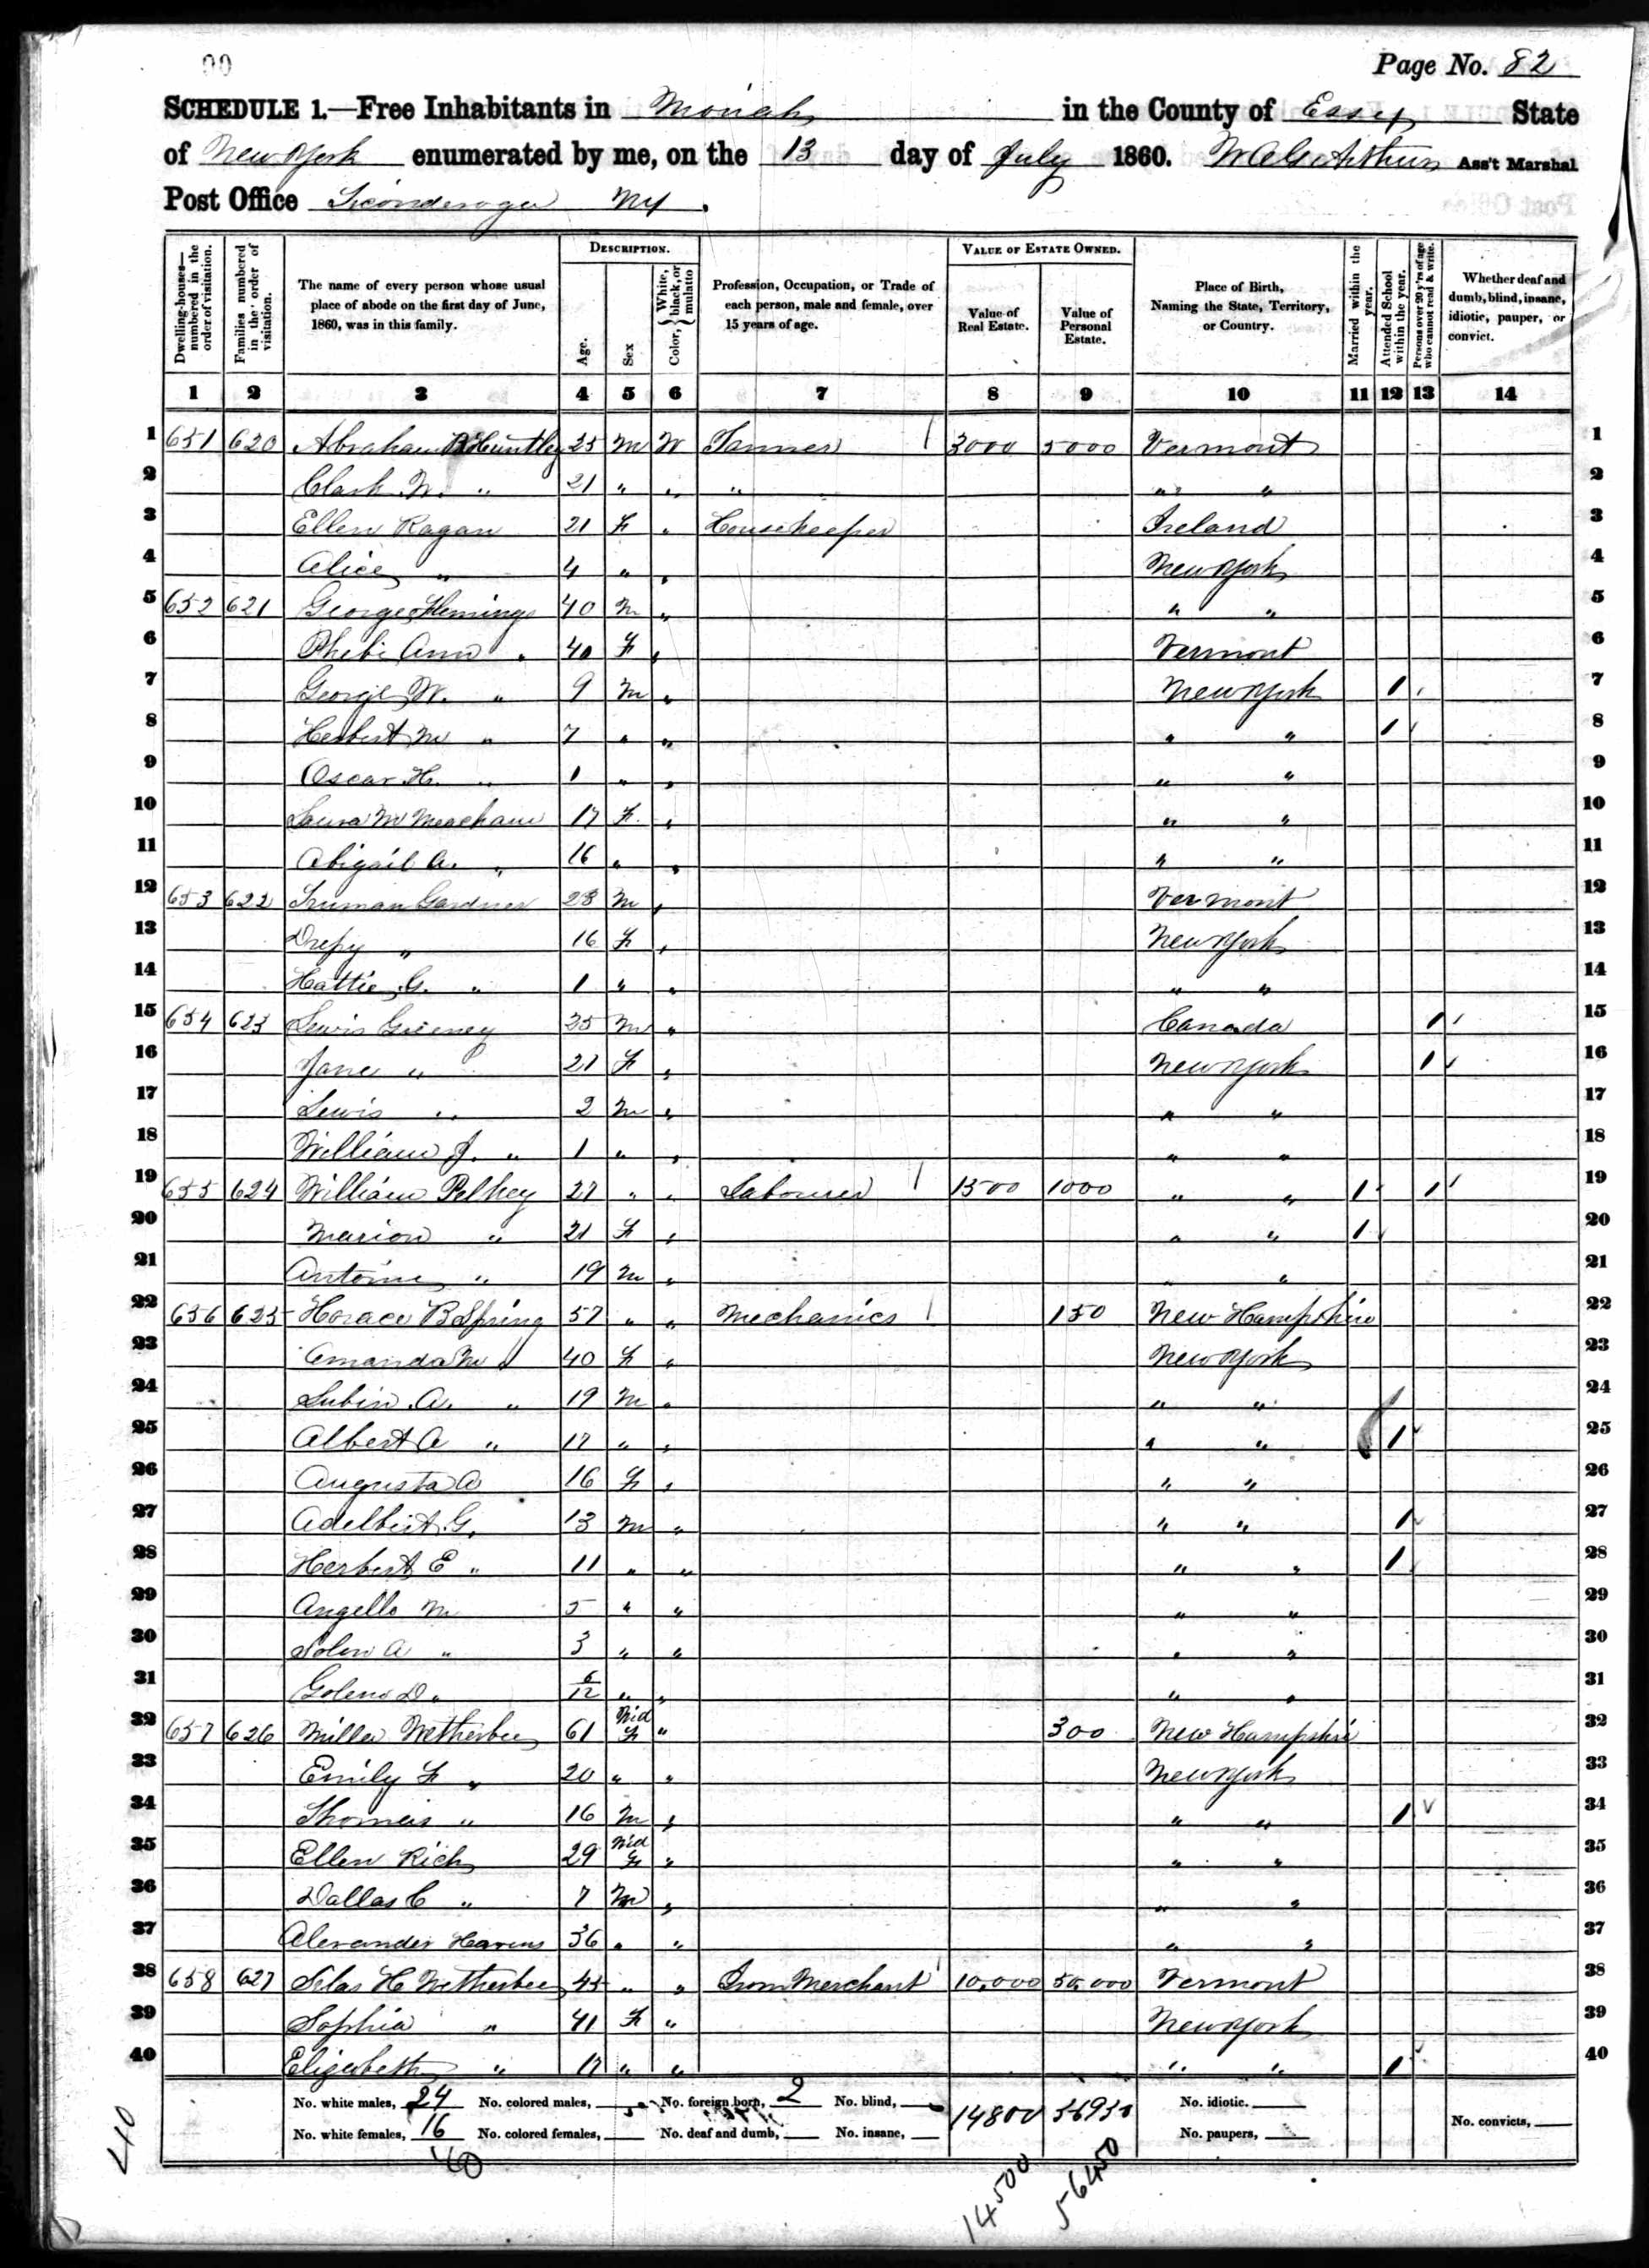 Page No. 82
SCHEDULE 1.—Free Inhabitants in Moriah in the County of Essex State
of New York enumerated by me, on the 13 day of July 1860. Ass't Marshal
Post Office Ticonderoga NY.
Dwelling-houses—numbered in the order of visitation. Families numbered in the order of visitation. The name of every person whose usual place of abode on the first day of June, 1860, was in this family. DESCRIPTION. Age. Sex Color, White, black, or mulatto Profession, Occupation, or Trade of each person, male and female, over 15 years of age. VALUE OF ESTATE OWNED. Value of Real Estate. Value of Personal Estate. Place of Birth, Naming the State, Territory, or Country. Married within the year. Attended School within the year. Persons over 20 y'rs of age who cannot read & write. Whether deaf and dumb, blind, insane, idiotic, pauper, or convict.
1 2 3 4 5 6 7 8 9 10 11 12 13 14
1 651 620 Abraham Huntley 25 M W 3000 5000 Vermont 1
2 Clark W. " 21 " " " " " 2
3 Ellen Ragan 21 F " Housekeeper Ireland 3
4 Alice " 4 " " New York 4
5 652 621 George Flemings 40 M " " " 5
6 Phebe Ann " 40 F " Vermont 6
7 George W. " 9 M " New York 1 7
8 Herbert M " 7 " " " " 1 8
9 Oscar H. " 1 " " " " 9
10 Laura M Meacham 17 F " " " 10
11 Abigail A. " 16 " " " " 11
12 653 622 Truman Gardner 28 M " Vermont 12
13 " 16 F " New York 13
14 Hattie G. " 1 " " " " 14
15 654 623 Lewis 25 M " Canada 1 15
16 Jane " 21 F " New York 1 16
17 Lewis " 2 M " " " 17
18 William J. " 1 " " " " 18
19 655 624 William Pelkey 27 " " Labourer 1500 1000 " " 1 1 19
20 Marion " 21 F " " " 1 20
21 Antoine " 19 M " " " 21
22 656 625 Horace B Spring 57 " " Mechanics 150 New Hampshire 22
23 Amanda M " 40 F " New York 23
24 Lubin A. " 19 M " " " 24
25 Albert A " 17 " " " " 1 25
26 Augusta A 16 F " " " 26
27 Adelbert G. 13 M " " " 1 27
28 Herbert E " 11 " " " " 1 28
29 Angello M 5 " " " " 29
30 Solon A " 3 " " " " 30
31 D " 6/12 " " " " 31
32 657 626 Wetherbee 61 Wid F " 300 New Hampshire 32
33 Emily F " 20 " " New York 33
34 Thomas " 16 M " " " 1 34
35 Ellen Rich 29 Wid F " " " 35
36 Dallas C " 7 M " " " 36
37 Alexander Havens 36 " " " " 37
38 658 627 Silas H Wetherbee 45 " " Iron Merchant 10,000 50,000 Vermont 38
39 Sophia " 41 F " New York 39
40 Elizabeth " 17 " " " " 1 40
No. white males, 24 No. colored males, No. foreign born, 2 No. blind, 14800 No. idiotic.
No. white females, 16 No. colored females, No. deaf and dumb, No. insane, No. paupers, No. convicts,
40 40
14500 56450